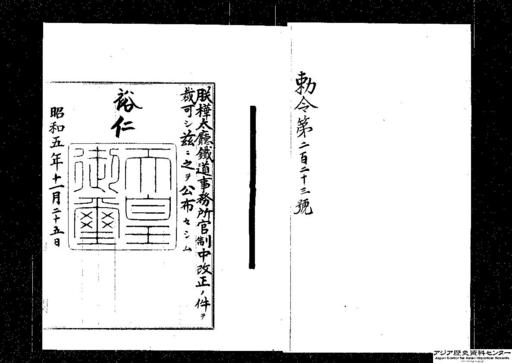 勅令第二百二十三號
朕樺太廳鐵道事務所官制中改正ノ件ヲ
裁可シ茲ニ之ヲ公布セシム
裕仁
天皇
御璽
昭和五年十一月二十五日
アジア歴史資料センター
Japan Center for Asian Historical Records